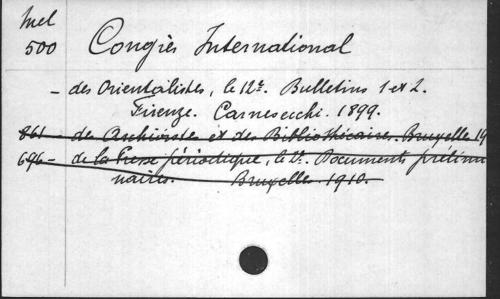 Mel
500 Congrès International
- des Orientalistes, le 12e. Bulletins 1 et 2.
Firenze. Carnesecchi. 1899.
861 - des Archivistes et des Bibliothécaires. Bruxelles 19
696 - de la Presse périodique, le Documents prélimi
naires. Bruxelles. 1910.